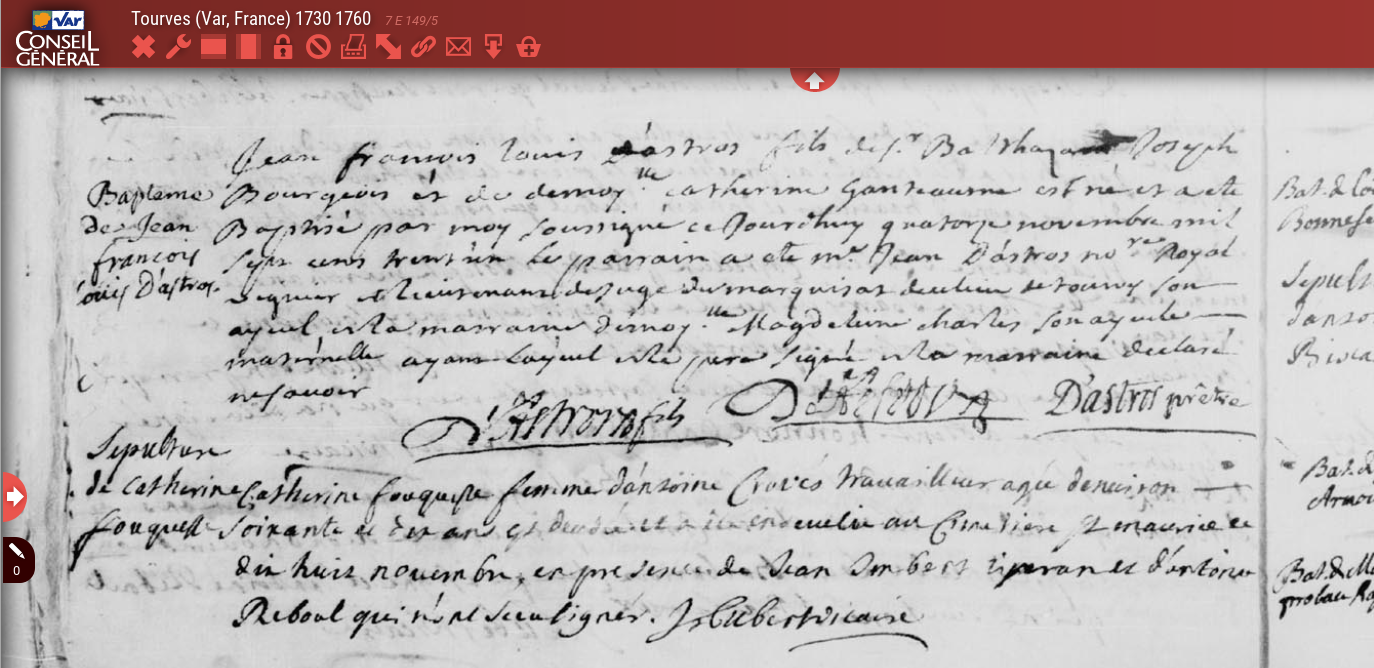 Tourves (Var, France) 1730 1760 7 E 149/5
Var
CONSEIL
GÉNÉRAL
Jean francois louis dastros fils de sr Balthazard Joseph
Bapteme
de Jean
francois
louis D'astros
Bourgeois et de demoylle catherine Ganteaume est né et a eté
Baptisé par moy soussigné ce Jourdhuy quatorze novembre mil
sept cens trent'un le parrain a eté mr Jean D'astros nore Royal
et lieutenant de Juge du marquisat de ce lieu de tourves son
ayeul et la marraine demoylle Magdeleine charles son ayeule
maternelle ayant l'ayeul et le pere signé et la marraine declaré
ne savoir
D'Astros fils
D'astros prêtre
Sepulture
de catherine
fouquette
Catherine fouquette femme dantoine travailleur agée denviron
soixante et dix ans est decedée et a été ensevelie au Cimetiere st maurice le
dix huit novembre, en presence de Jean Imbert et d'antoine
Reboul qui n'ont sceu signer. vicaire
Bat. de
Sepult
Bat. d
Arnou
Bat. de
0